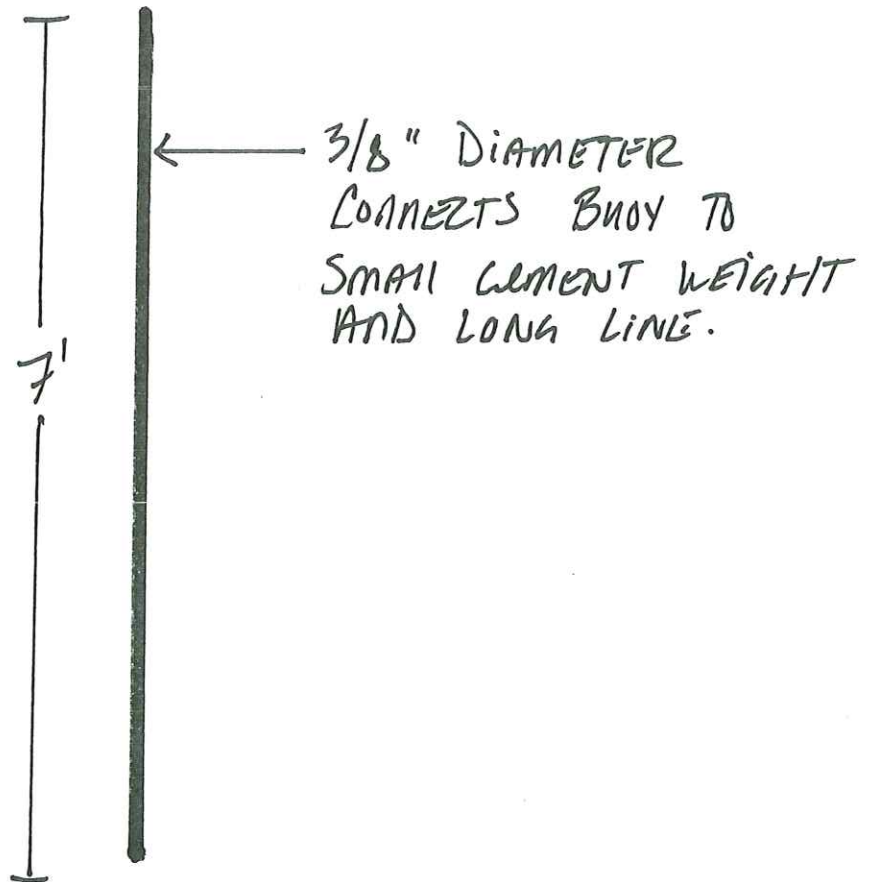 3/8" DIAMETER
CONNECTS BUOY TO
SMALL CEMENT WEIGHT
AND LONG LINE.
7'